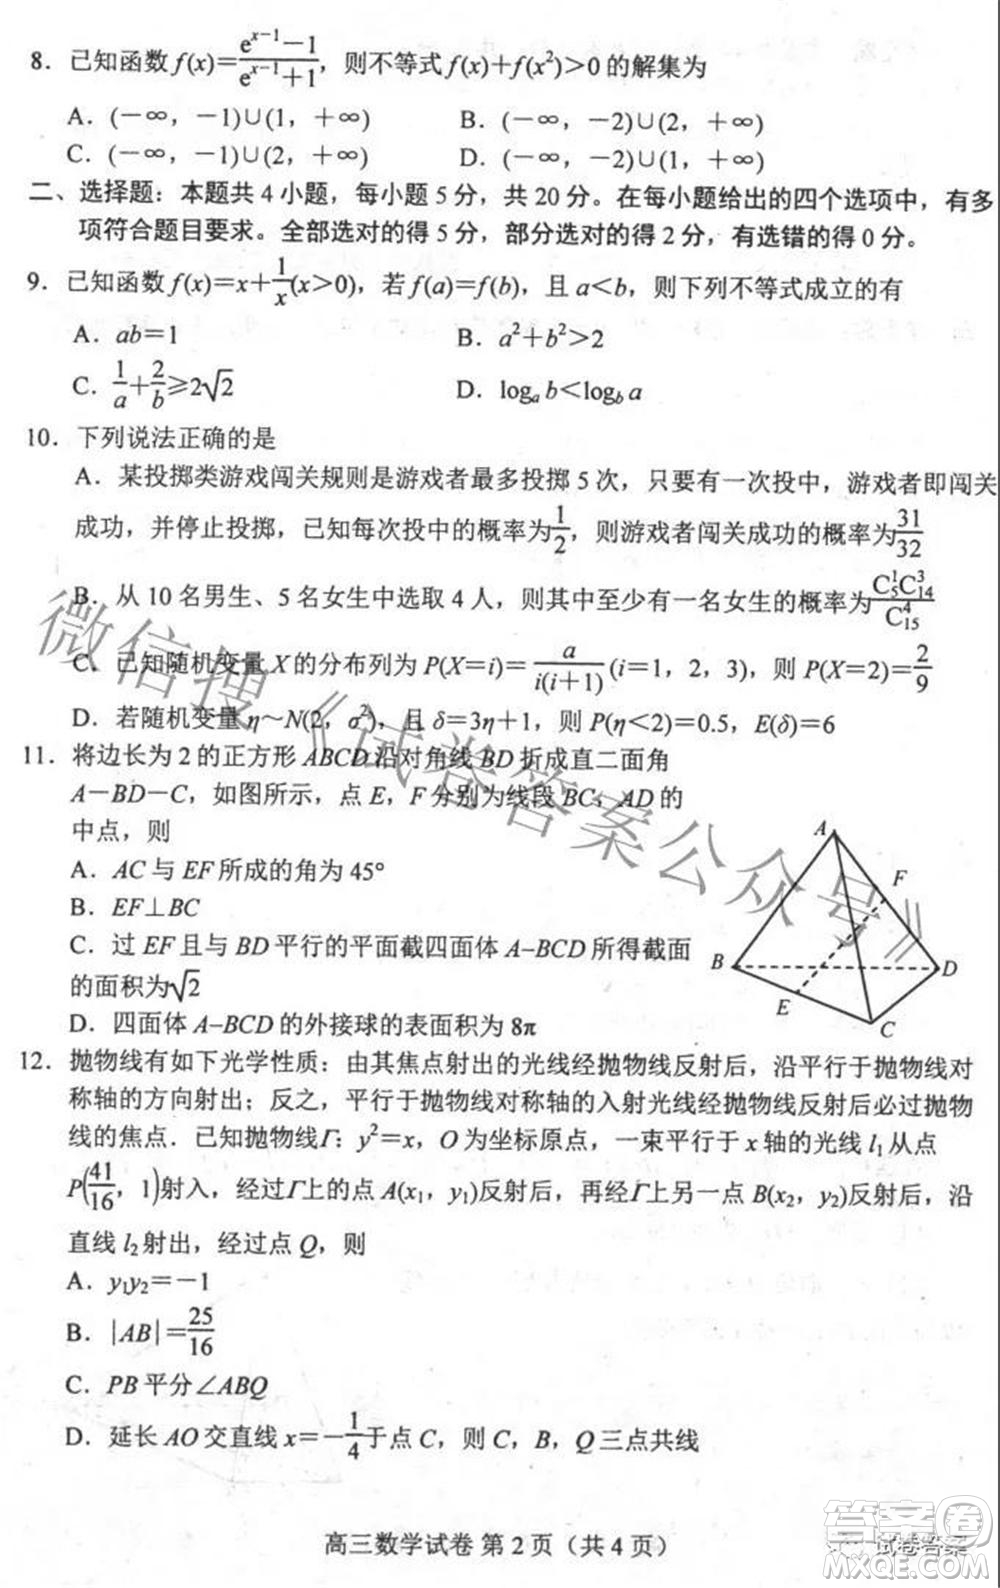 8．已知函数 f(x)=(e^{x-1}-1)/(e^{x-1}+1)，则不等式 f(x)+f(x²)>0 的解集为
A．(-∞，-1)∪(1，+∞) B．(-∞，-2)∪(2，+∞)
C．(-∞，-1)∪(2，+∞) D．(-∞，-2)∪(1，+∞)
二、选择题：本题共 4 小题，每小题 5 分，共 20 分。在每小题给出的四个选项中，有多
项符合题目要求。全部选对的得 5 分，部分选对的得 2 分，有选错的得 0 分。
9．已知函数 f(x)=x+1/x(x>0)，若 f(a)=f(b)，且 a<b，则下列不等式成立的有
A．ab=1 B．a²+b²>2
C．1/a+2/b≥2√2 D．log_a b<log_b a
10．下列说法正确的是
A．某投掷类游戏闯关规则是游戏者最多投掷 5 次，只要有一次投中，游戏者即闯关
成功，并停止投掷，已知每次投中的概率为1/2，则游戏者闯关成功的概率为31/32
B．从 10 名男生、5 名女生中选取 4 人，则其中至少有一名女生的概率为C₅¹C₁₄³/C₁₅⁴
C．已知随机变量 X 的分布列为 P(X=i)=a/(i(i+1))(i=1，2，3)，则 P(X=2)=2/9
D．若随机变量 η~N(2，σ²)，且 δ=3η+1，则 P(η<2)=0.5，E(δ)=6
11．将边长为 2 的正方形 ABCD 沿对角线 BD 折成直二面角
A-BD-C，如图所示，点 E，F 分别为线段 BC，AD 的
中点，则
A．AC 与 EF 所成的角为 45°
B．EF⊥BC
C．过 EF 且与 BD 平行的平面截四面体 A-BCD 所得截面
的面积为√2
D．四面体 A-BCD 的外接球的表面积为 8π
A
F
B
D
E
C
12．抛物线有如下光学性质：由其焦点射出的光线经抛物线反射后，沿平行于抛物线对
称轴的方向射出；反之，平行于抛物线对称轴的入射光线经抛物线反射后必过抛物
线的焦点．已知抛物线Γ：y²=x，O 为坐标原点，一束平行于 x 轴的光线 l₁ 从点
P(41/16，1)射入，经过Γ上的点 A(x₁，y₁)反射后，再经Γ上另一点 B(x₂，y₂)反射后，沿
直线 l₂ 射出，经过点 Q，则
A．y₁y₂=-1
B．|AB|=25/16
C．PB 平分∠ABQ
D．延长 AO 交直线 x=-1/4于点 C，则 C，B，Q 三点共线
高三数学试卷 第 2 页（共 4 页）
微信搜《试卷答案公众号》
答案圈
试卷答案
MXQE.COM